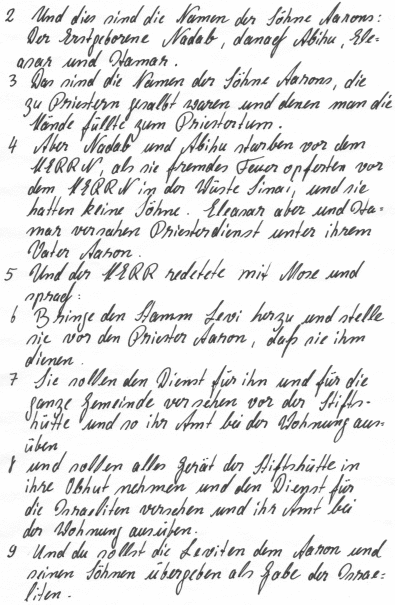 2 Und dies sind die Namen der Söhne Aarons:
Der Erstgeborene Nadab, danach Abihu, Ele=
asar und Itamar.
3 Das sind die Namen der Söhne Aarons, die
zu Priestern gesalbt waren und denen man die
Hände füllte zum Priestertum.
4 Aber Nadab und Abihu starben vor dem
HERRN, als sie fremdes Feuer opferten vor
dem HERRN in der Wüste Sinai, und sie
hatten keine Söhne. Eleasar aber und Ita=
mar versahen Priesterdienst unter ihrem
Vater Aaron.
5 Und der HERR redetete mit Mose und
sprach:
6 Bringe den Stamm Levi herzu und stelle
sie vor den Priester Aaron, daß sie ihm
dienen.
7 Sie sollen den Dienst für ihn und für die
ganze Gemeinde versehen vor der Stifts-
hütte und so ihr Amt bei der Wohnung aus=
üben
8 und sollen alles Gerät der Stiftshütte in
ihre Obhut nehmen und den Dienst für
die Israeliten versehen und ihr Amt bei
der Wohnung ausüben.
9 Und du sollst die Leviten dem Aaron und
seinen Söhnen übergeben als Gabe der Israe=
liten.